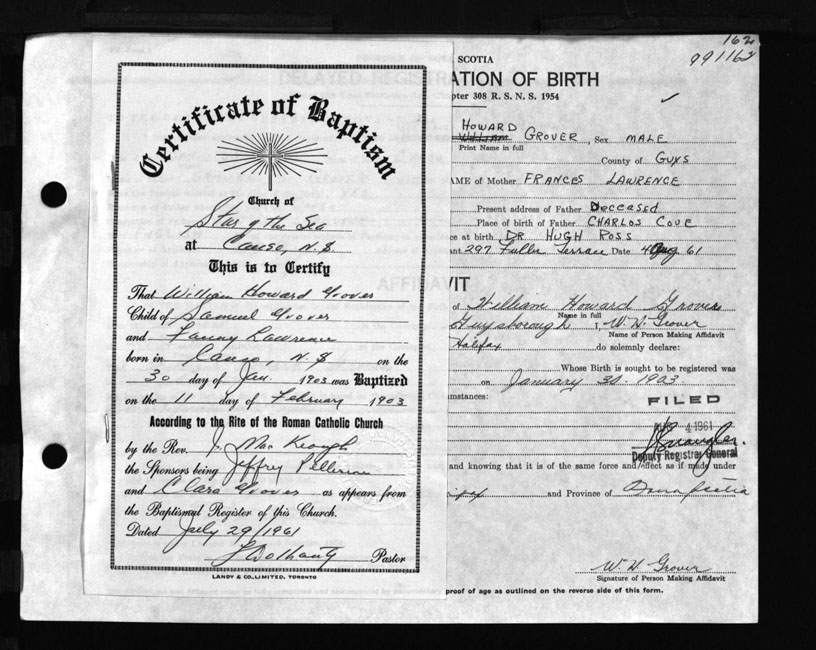 162
991162
Certificate of Baptism
Church of
Star of the Sea
at Canso, N.S
This is to Certify
That William Howard Grover
Child of Samuel Grover
and Fanny Lawrence
born in Canso, N.S on the
30 day of Jan. 1903 was Baptized
on the 11 day of February 1903
According to the Rite of the Roman Catholic Church
by the Rev. J. Mac Keough
the Sponsors being Jeffrey Pellerine
and Clara Grover as appears from
the Baptismal Register of this Church.
Dated July 29/1961
Pastor
LANDY & CO., LIMITED, TORONTO
SCOTIA
ATION OF BIRTH
pter 308 R. S. N. S. 1954
HOWARD
WILLIAM GROVER, Sex MALE
Print Name in full
County of GUYS
AME of Mother FRANCES LAWRENCE
Present address of Father DECEASED
Place of birth of Father CHARLOS COVE
ce at birth DR HUGH ROSS
ant 297 Fuller Terrace Date 4 Aug 61
VIT
of William Howard Grover
Name in full
Guysborough I, W. H. Grover
Name of Person Making Affidavit
Halifax do solemnly declare:
Whose Birth is sought to be registered was
on January 30. 1903
umstances:
FILED
4 1961
Deputy Registrar General
and knowing that it is of the same force and effect as if made under
and Province of Nova Scotia
W. H. Grover
Signature of Person Making Affidavit
proof of age as outlined on the reverse side of this form.